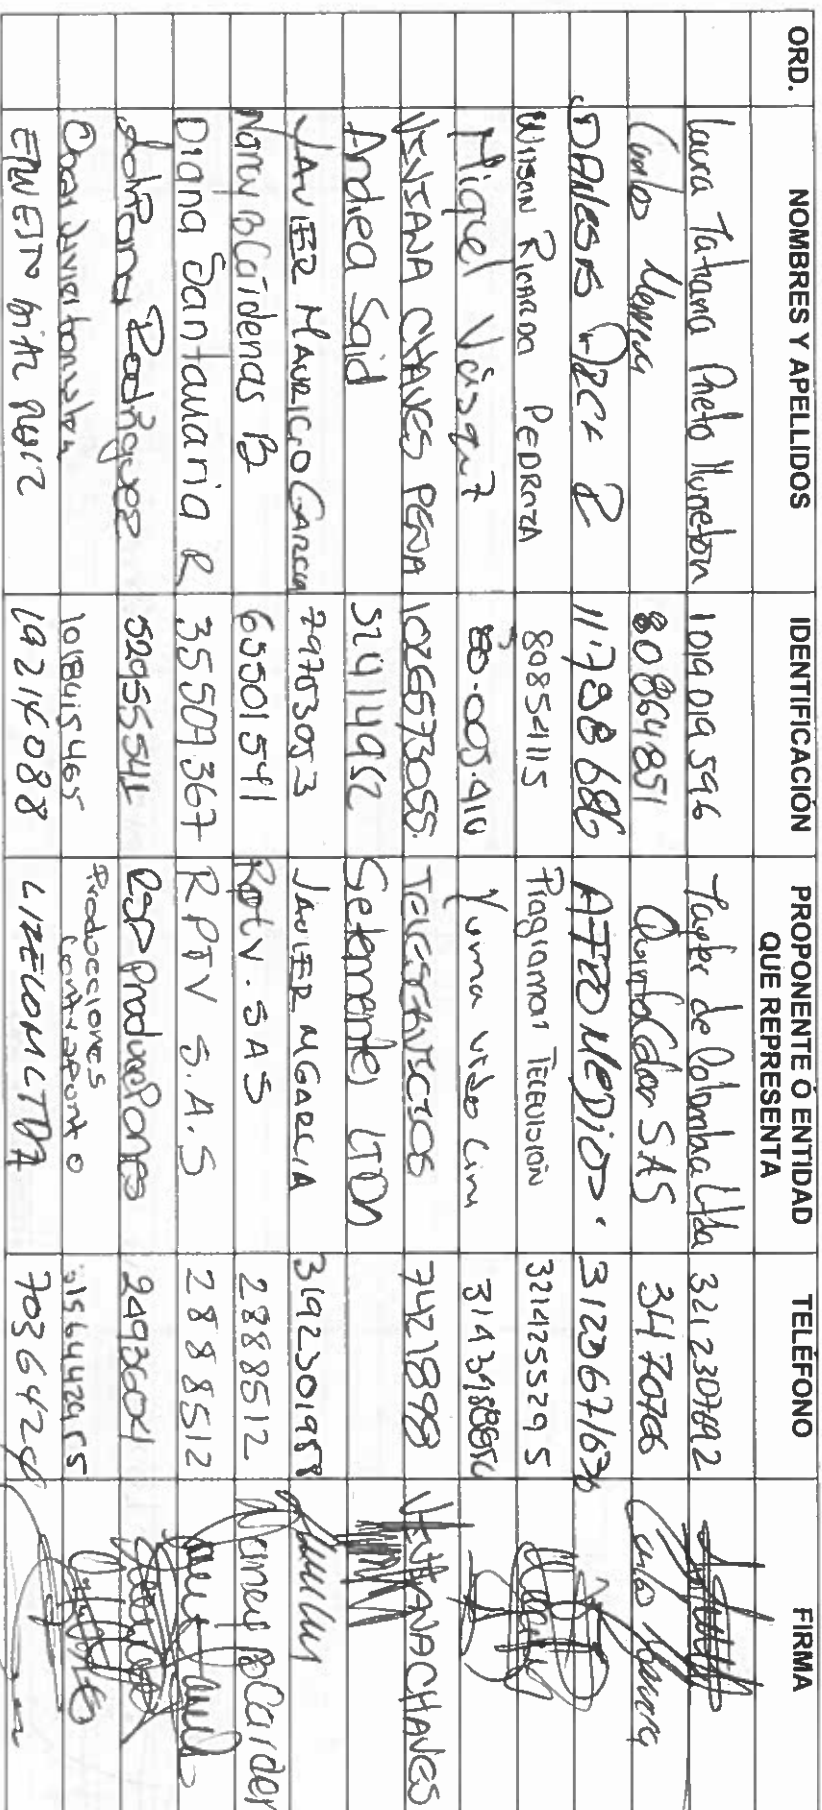 ORD. NOMBRES Y APELLIDOS IDENTIFICACIÓN PROPONENTE O ENTIDAD QUE REPRESENTA TELÉFONO FIRMA
Laura Tatiana Prieto Muneton 1019019596 de Colombia Ltda 3212307692
Carlos Herrera 80864851 Quinto Color SAS 3470706 Carlos Herrera
11798686 AFRO MEDIOS. 3122671636
Wilson Ricardo PEDROZA 80854115 Programar TELEVISIÓN 3214255295
Miguel Vásquez 80.005.410 Yuma Video Cine
VIVIANA CHAVES PEÑA 1026573055 TELESERVICIOS 7421898 VIVIANA CHAVES
Andrea Said 52414952 Setemantes LTDA
JAVIER MAURICIO GARCIA 79703053 JAVIER M GARCIA 3192301958
Nancy B Cárdenas B 65501541 Rptv. SAS 2888512 Nancy B Carden
Diana Santamaria R 35509367 RPTV S.A.S 2888512
Johana Rodriguez 52955541 Producciones 2493604
Oscar Javier González 1018415465 Producciones Contrapunto
19214088 LTDA